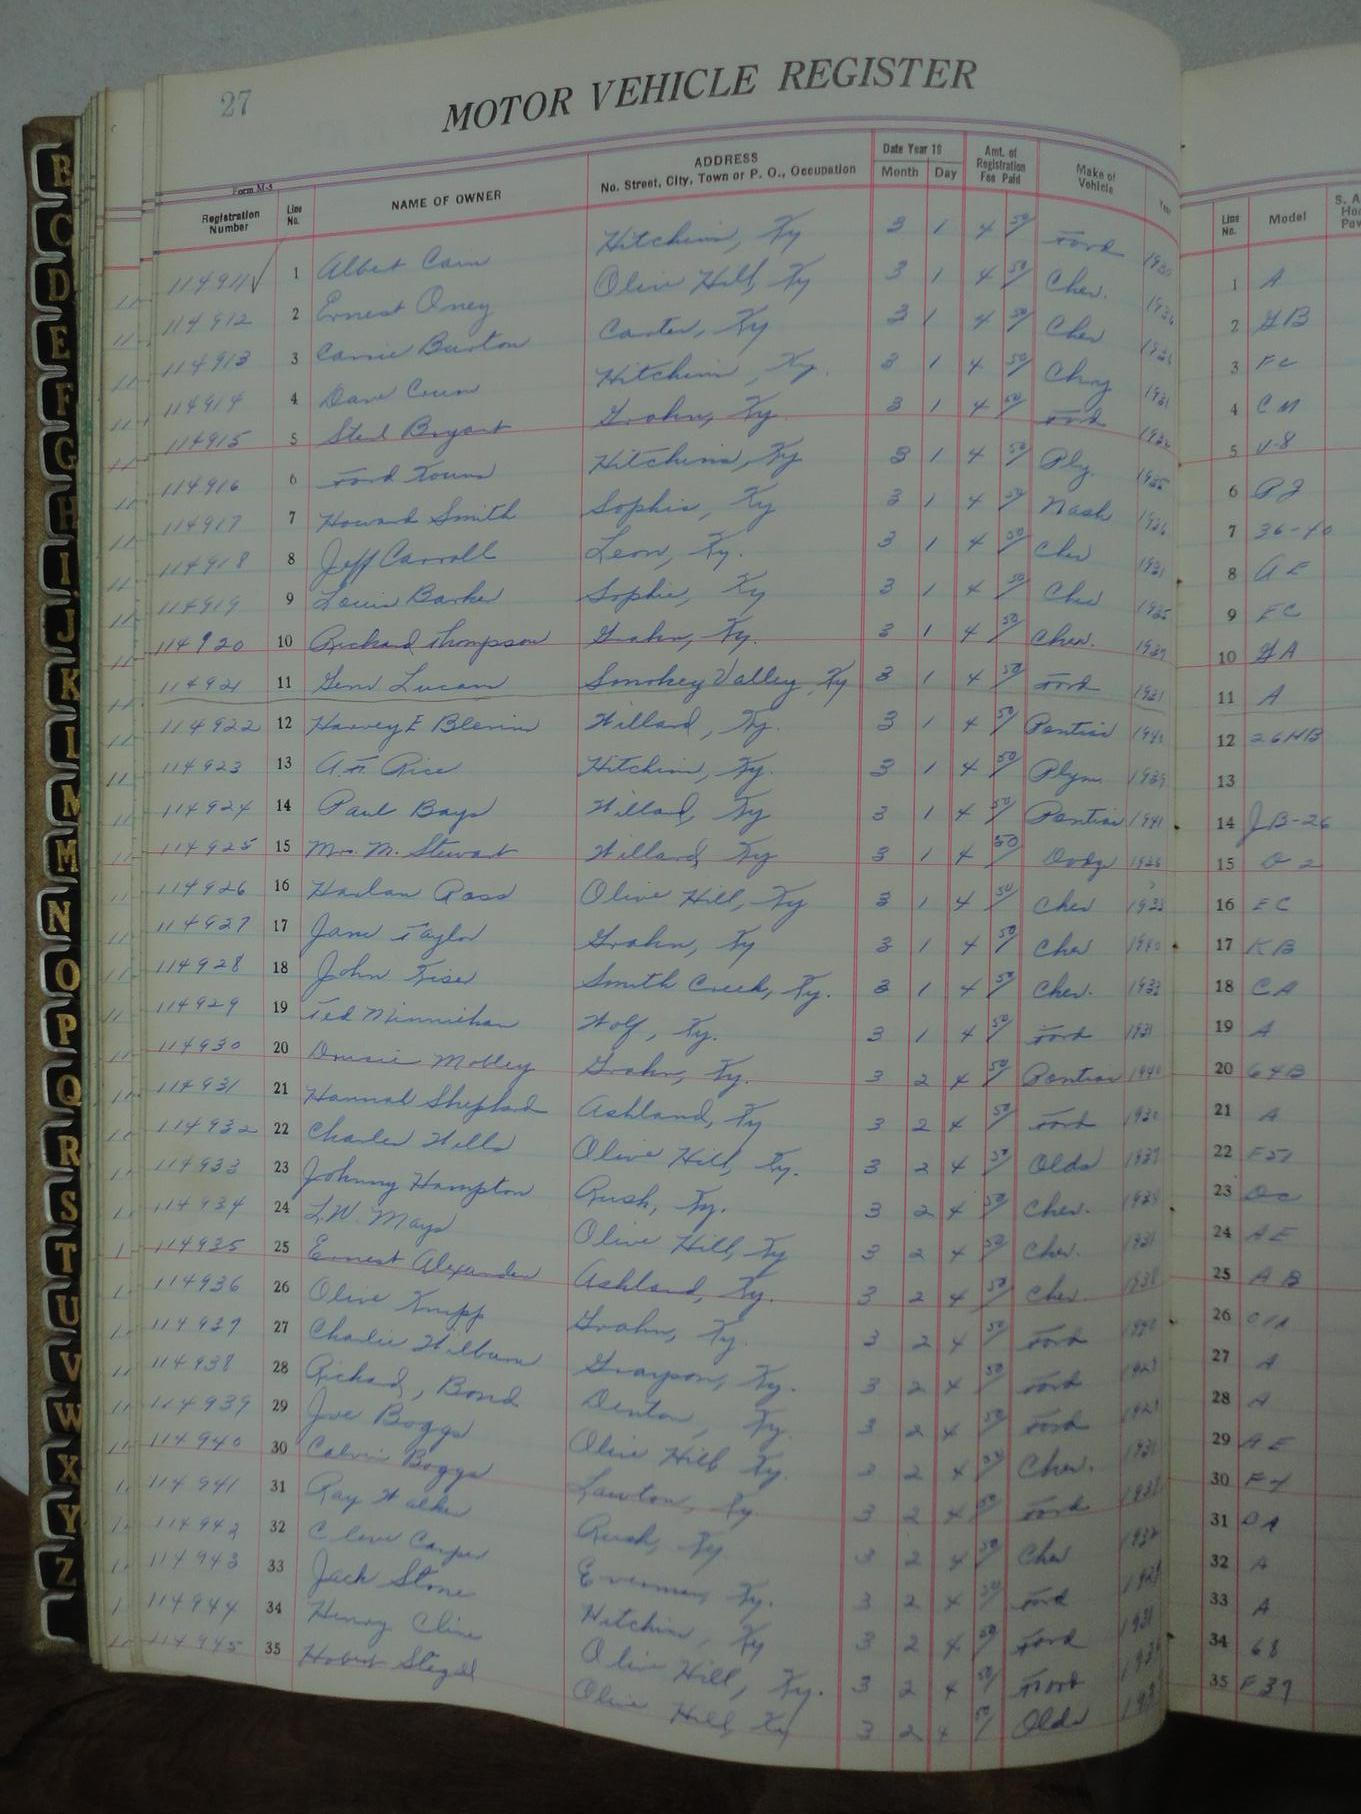 27
MOTOR VEHICLE REGISTER
Form M-5
Registration Number Line No. NAME OF OWNER ADDRESS No. Street, City, Town or P. O., Occupation Date Year 19 Month Day Amt. of Registration Fee Paid Make of Vehicle Year Line No. Model
114911 √ 1 Albert Hitchins, Ky 3 1 4 50 Ford 1930 1 A
114912 2 Ernest Oney Olive Hill, Ky 3 1 4 50 Chev. 2 GB
114913 3 Carrie Burton Carter, Ky 3 1 4 50 Chev 3 FC
114914 4 Dave Hitchins, Ky. 3 1 4 50 1931 4 CM
114915 5 Bryant Grahn, Ky. 3 1 4 50 Ford 5 V-8
114916 6 Ford Hitchins, Ky 3 1 4 50 Ply. 1935 6 PJ
114917 7 Howard Smith Sophie, Ky 3 1 4 50 Nash 1936 7 36-40
114918 8 Jeff Carroll Leon, Ky. 3 1 4 50 Chev 1931 8 AE
114919 9 Louis Barker Sophie, Ky 3 1 4 50 Chev 1935 9 EC
114920 10 Richard Thompson Grahn, Ky. 3 1 4 50 Chev. 1937 10 GA
114921 11 Gene Lucas Smokey Valley, Ky 3 1 4 50 Ford 1931 11 A
114922 12 Harvey E Blevins Willard, Ky. 3 1 4 50 Pontiac 1940 12 26HB
114923 13 Rice Hitchins, Ky. 3 1 4 50 Plym 1939 13
114924 14 Paul Bays Willard, Ky 3 1 4 50 Pontiac 1941 14 JB-26
114925 15 Mrs. M. Stewart Willard, Ky 3 1 4 50 Dodge 15 D 2
114926 16 Harlan Ross Olive Hill, Ky 3 1 4 50 Chev 16 EC
114927 17 Jane Taylor Grahn, Ky 3 1 4 50 Chev 1940 17 KB
114928 18 John Kiser Smith Creek, Ky. 3 1 4 50 Chev. 1933 18 CA
114929 19 Ted Minnichan Wolf, Ky. 3 1 4 50 Ford 1931 19 A
114930 20 Mobley Grahn, Ky. 3 2 4 50 Pontiac 1940 20 64B
114931 21 Hannal Shephard Ashland, Ky 3 2 4 50 Ford 1930 21 A
114932 22 Charles Wells Olive Hill, Ky. 3 2 4 50 Olds 1937 22
114933 23 Johnny Hampton Rush, Ky. 3 2 4 50 Chev. 23 DC
114934 24 L.W. Mays Olive Hill, Ky 3 2 4 50 Chev. 1931 24 AE
114935 25 Ernest Alexander Ashland, Ky. 3 2 4 50 Chev. 25 AB
114936 26 Olive Knipp Grahn, Ky. 3 2 4 50 Ford 1940 26 01A
114937 27 Charlie Wilburn Grayson, Ky. 3 2 4 50 Ford 27 A
114938 28 Richard, Bond Denton, Ky. 3 2 4 50 Ford 28 A
114939 29 Joe Boggs Olive Hill Ky. 3 2 4 50 Chev. 1931 29 AE
114940 30 Calvin Boggs Lawton, Ky. 3 2 4 50 Ford 30
114941 31 Ray Walker Rush, Ky 3 2 4 50 Chev 31 DA
114942 32 Cleve Everman, Ky. 3 2 4 50 Ford 32 A
114943 33 Jack Stone Hitchins, Ky 3 2 4 50 Ford 1931 33 A
114944 34 Henry Cline Olive Hill, Ky. 3 2 4 50 Ford 34 68
114945 35 Hobert Olive Hill, Ky 3 2 4 50 Olds 35 F37
B
C
D
E
F
G
H
I
J
K
L
M
M
N
O
P
Q
R
S
T
U
V
W
X
Y
Z